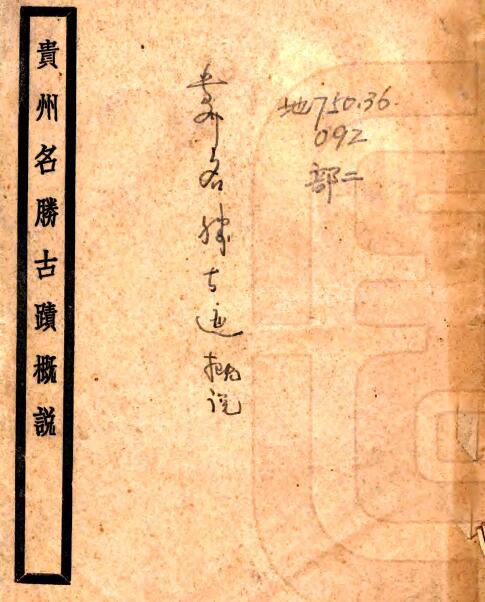 貴州名勝古蹟概説
贵州名胜古迹概说
地750.36
092
部二